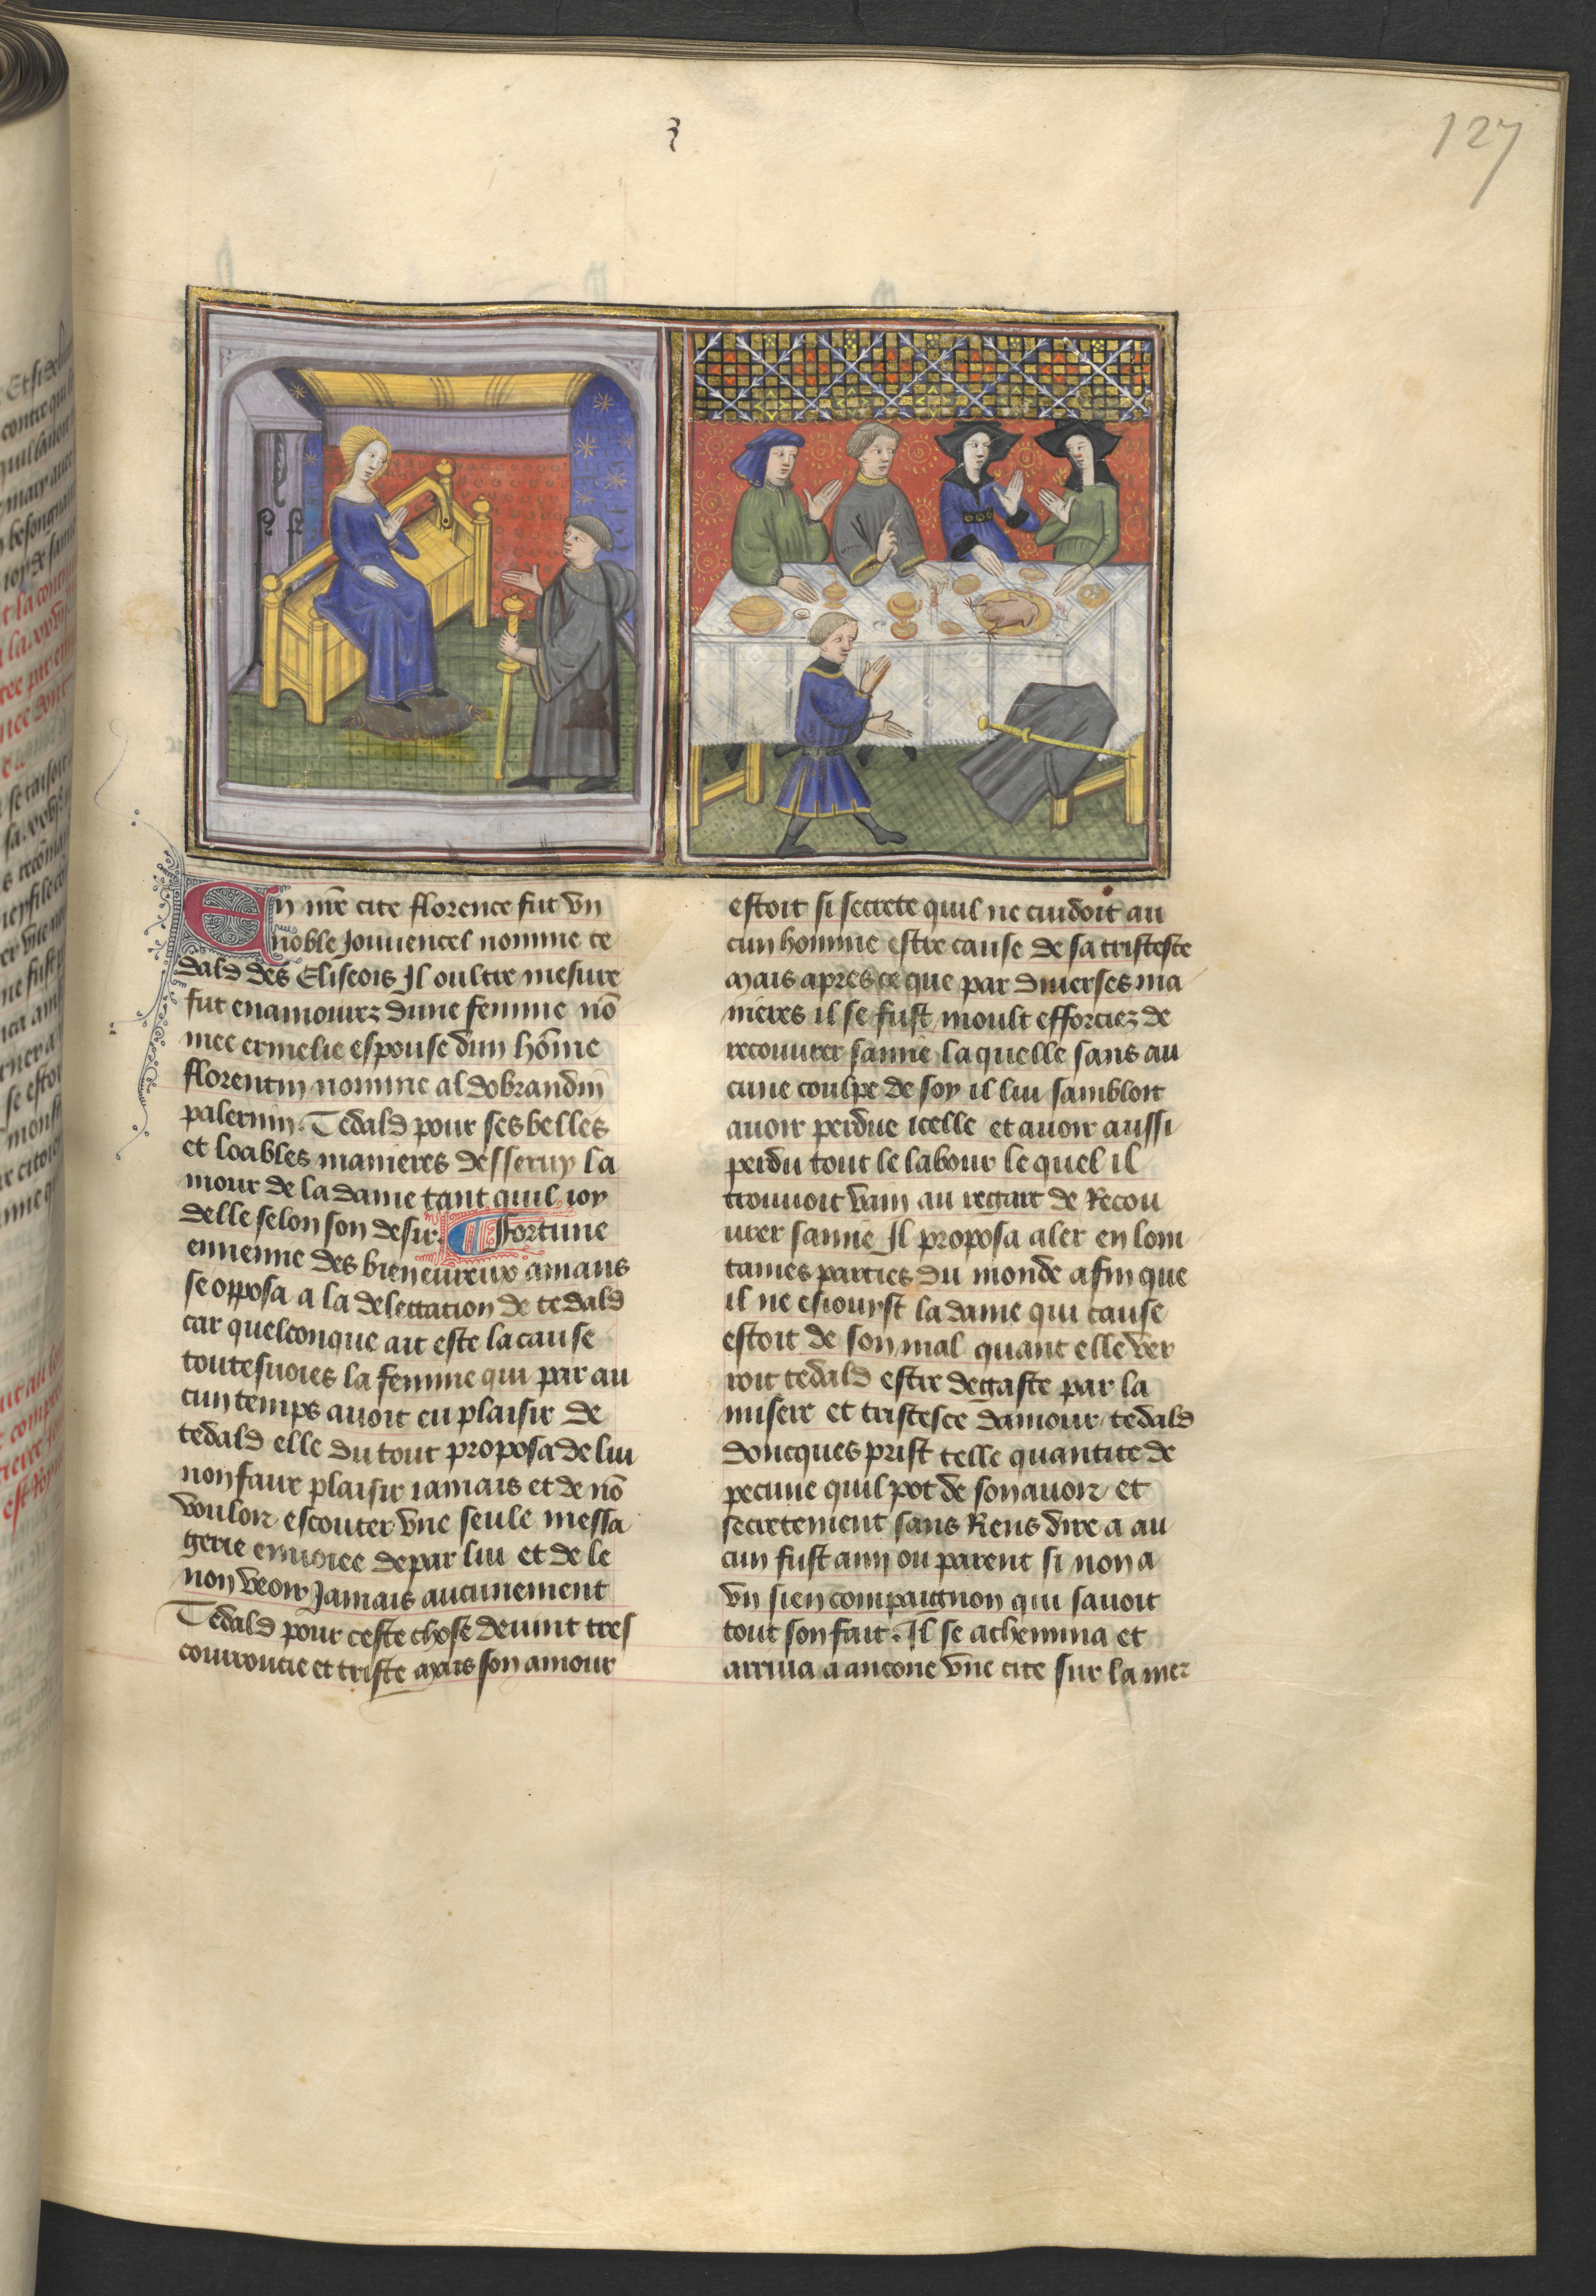 127
En nr̄e cite florence fut vn
noble Jouuencel nomme te
dald des Eliseois Il oultre mesure
fut enamourez dune femme nō
mee ermelie espouse dun hōme
florentin nomme aldobrandin
palermin. Tedald pour ses belles
et loables manieres desseruy la
mour de la dame tant quil ioy
delle selon son desir. ¶ Fortune
ennemie des bieneureux amans
se opposa a la delectation de tedald
car quelconque ait este la cause
toutesuoies la femme qui par au
cun temps auoit eu plaisir de
tedald elle du tout proposa de lui
non faire plaisir iamais et de nō
vouloir escouter vne seule messa
gerie enuoiee de par lui et de le
non veoir Jamais aucunement
Tedald pour ceste chose deuint tres
courroucie et triste mais son amour
estoit si secrete quil ne cuidoit au
cun homme estre cause de sa tristesce
mais apres ce que par diuerses ma
nieres il se fust moult efforciez de
recouurer samie laquelle sans au
cune coulpe de soy il lui sambloit
auoir perdue icelle et auoir aussi
perdu tout le labour le quel il
trouuoit vain au regart de Recou
urer samie Il proposa aler en loin
taines parties du monde afin que
il ne esiouyst la dame qui cause
estoit de son mal quant elle ver
roit tedald estre degaste par la
misere et tristesce damour / tedald
doncques prist telle quantite de
pecune quil pot de son auoir et
secretement sans Riens dire a au
cun fust ami ou parent si non a
vn sien compaignon qui sauoit
tout son fait. Il se achemina et
arriua a ancone vne cite sur la mer